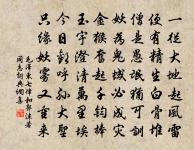 一從大地起風雷
便有精生白骨堆
僧是愚氓猶可訓
妖為鬼蜮必成災
金猴奮起千鈞棒
玉宇澄清萬里埃
今日歡呼孫大聖
只緣妖霧又重來
毛澤東七律和郭沫若
同志